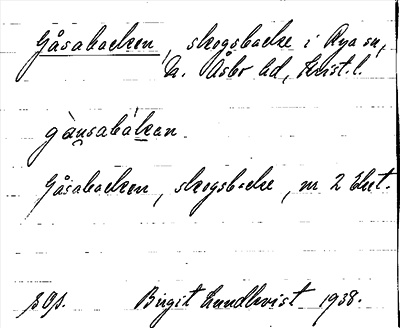 Gåsabacken, skogsbacke i Rya sn,
N. Åsbo hd, Krist. l.
gàu̯sabák̲an.
Gåsabacken, skogsbacke, nr 2 Eket.
Birgit Lundkvist 1938.